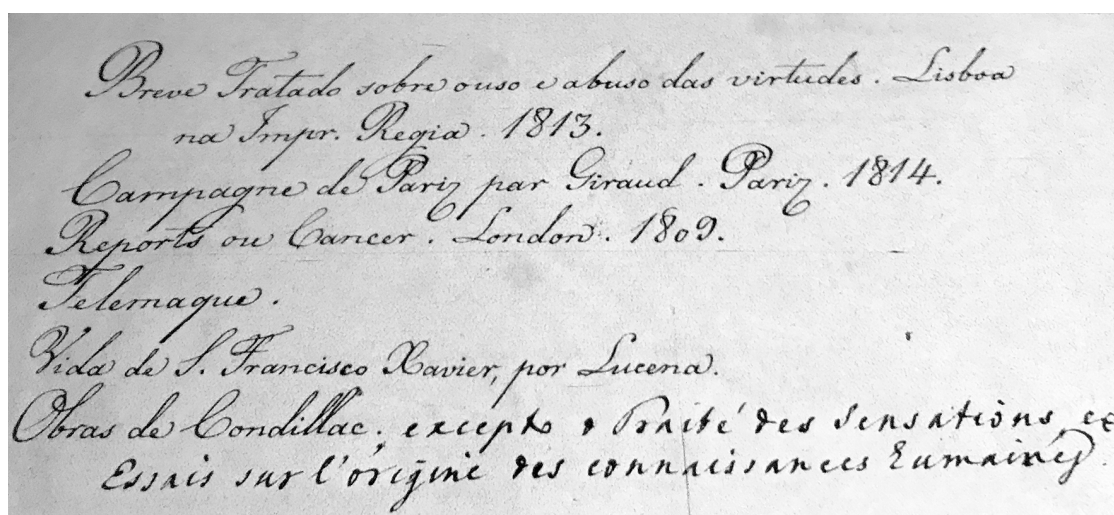 Breve Tratado sobre ouso e abuso das virtudes. Lisboa
na Impr. Regia. 1813.
Campagne de Pariz par Giraud. Pariz. 1814.
Reports ou Cancer. London. 1809.
Telemaque.
Vida de S. Francisco Xavier, por Lucena.
Obras de Condillac. excepto o Traité des Sensations, et
Essais sur l'origine des connaissances humaines